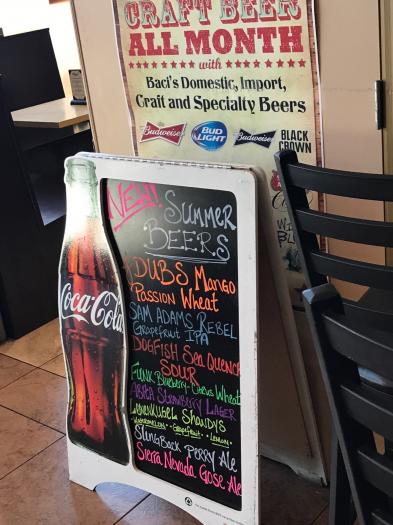 CRAFT BEER
ALL MONTH
with
Baci's Domestic, Import,
Craft and Specialty Beers
Budweiser
BUD LIGHT
Budweiser
BLACK CROWN
Coca-Cola
NEW!
SUMMER
BEERS
DUBS Mango
Passion Wheat
SAM ADAMS REBEL
Grapefruit IPA
DOGFISH Sea Quench
SOUR
Funk Blueberry-Citrus Wheat
Abita Strawberry LAGER
Leinenkugel Shandys
Watermelon · Grapefruit · Lemon
SlingBack PERRY Ale
Sierra Nevada Gose Ale